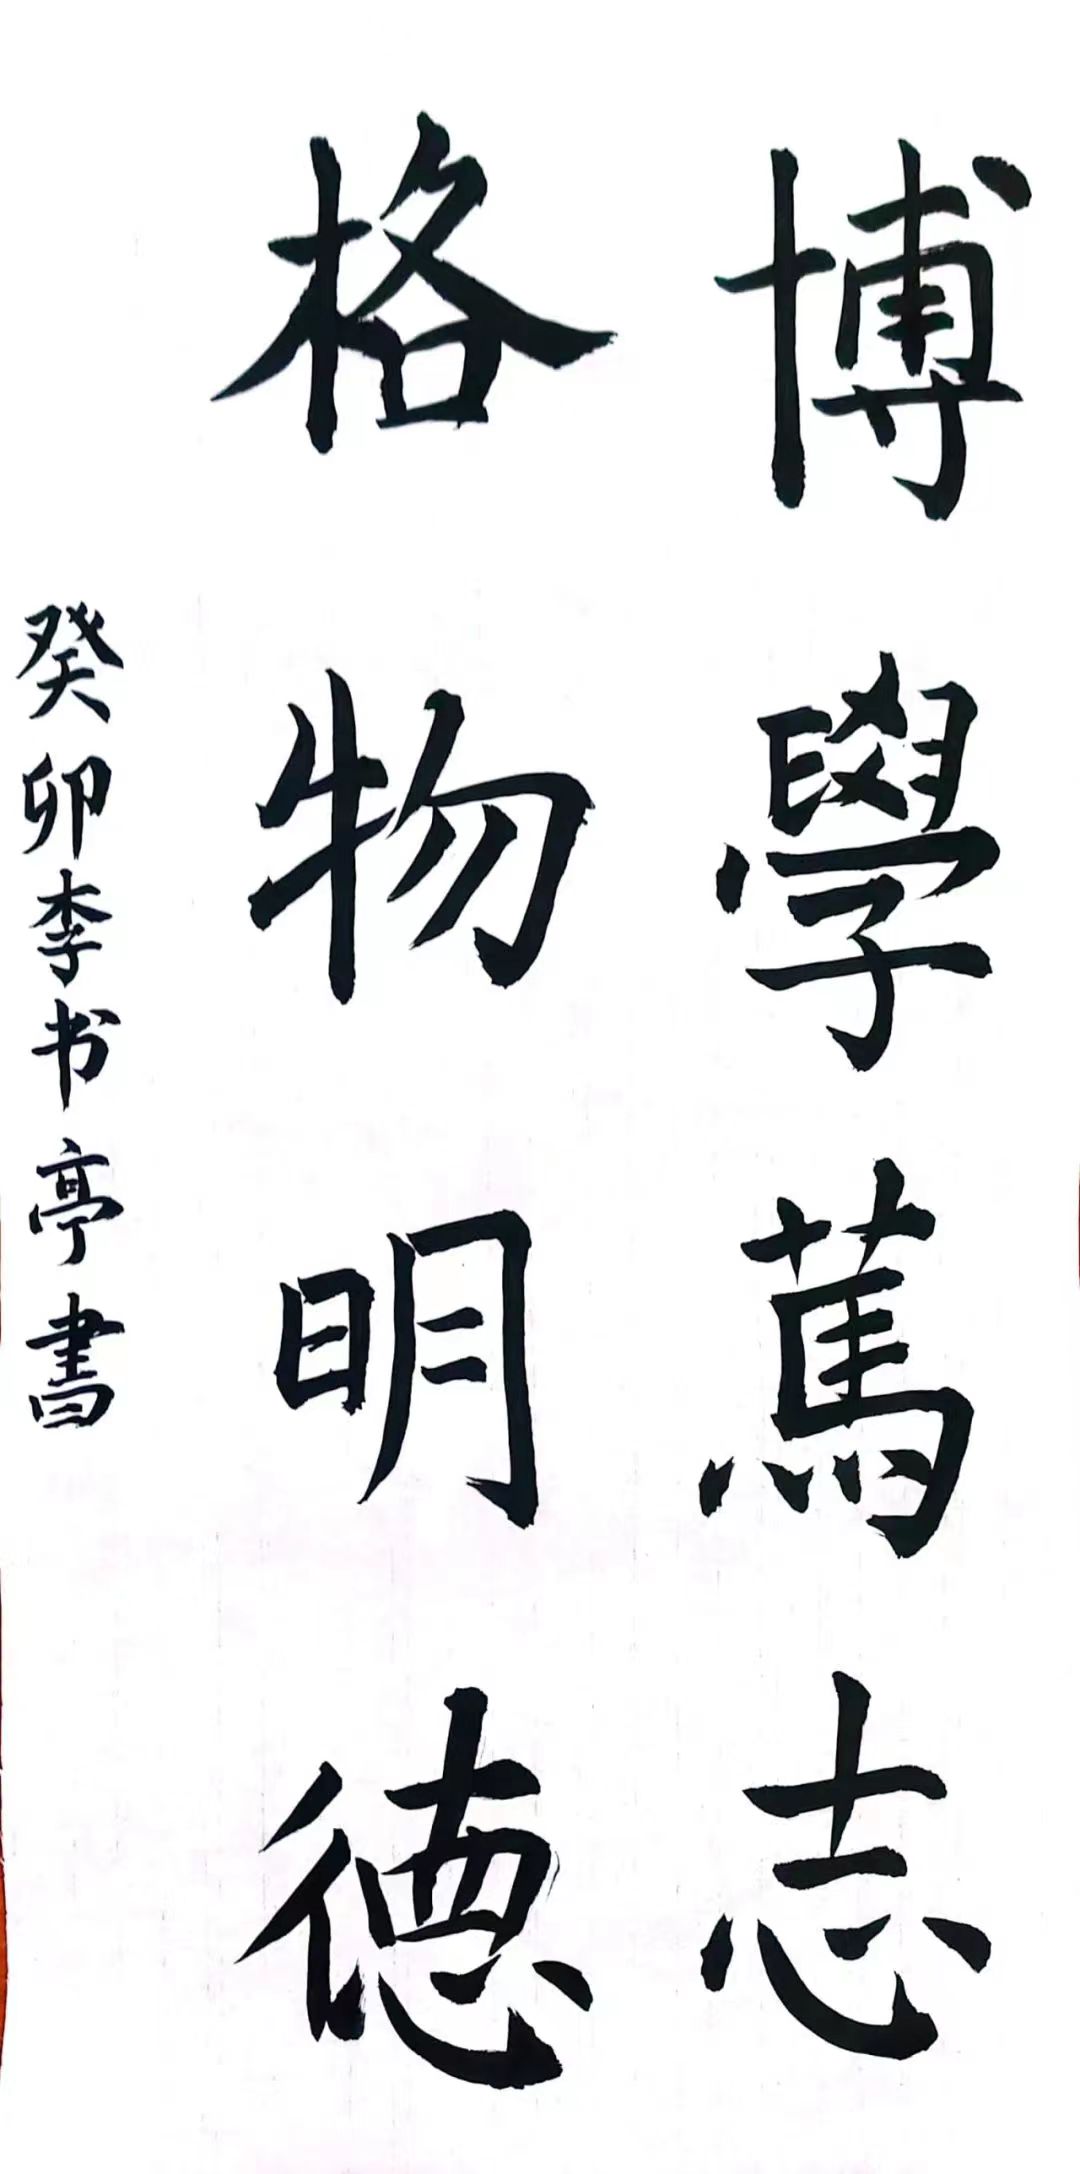 博學篤志
格物明德
癸卯李书亭書